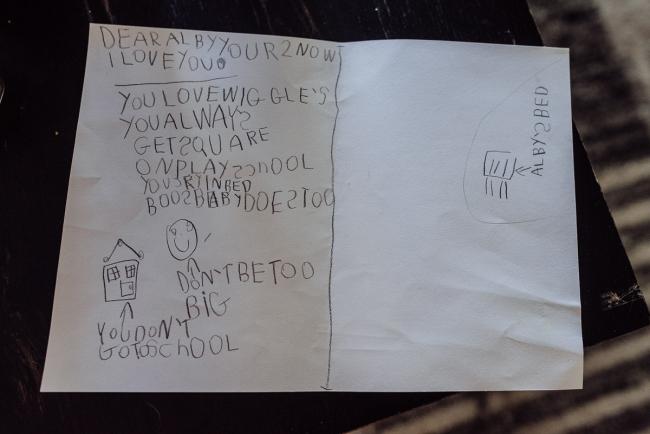 DEAR ALBY YOUR 2 NOW
I LOVE YOU
YOU LOVE WIGGLE'S
YOU ALWAYS
GET SQUARE
ON PLAY SCHOOL
YOU CRY IN BED
BOO'S BABY DOES TOO
DON'T BE TOO
BIG
YOU DON'T
GO TO SCHOOL
ALBY'S BED